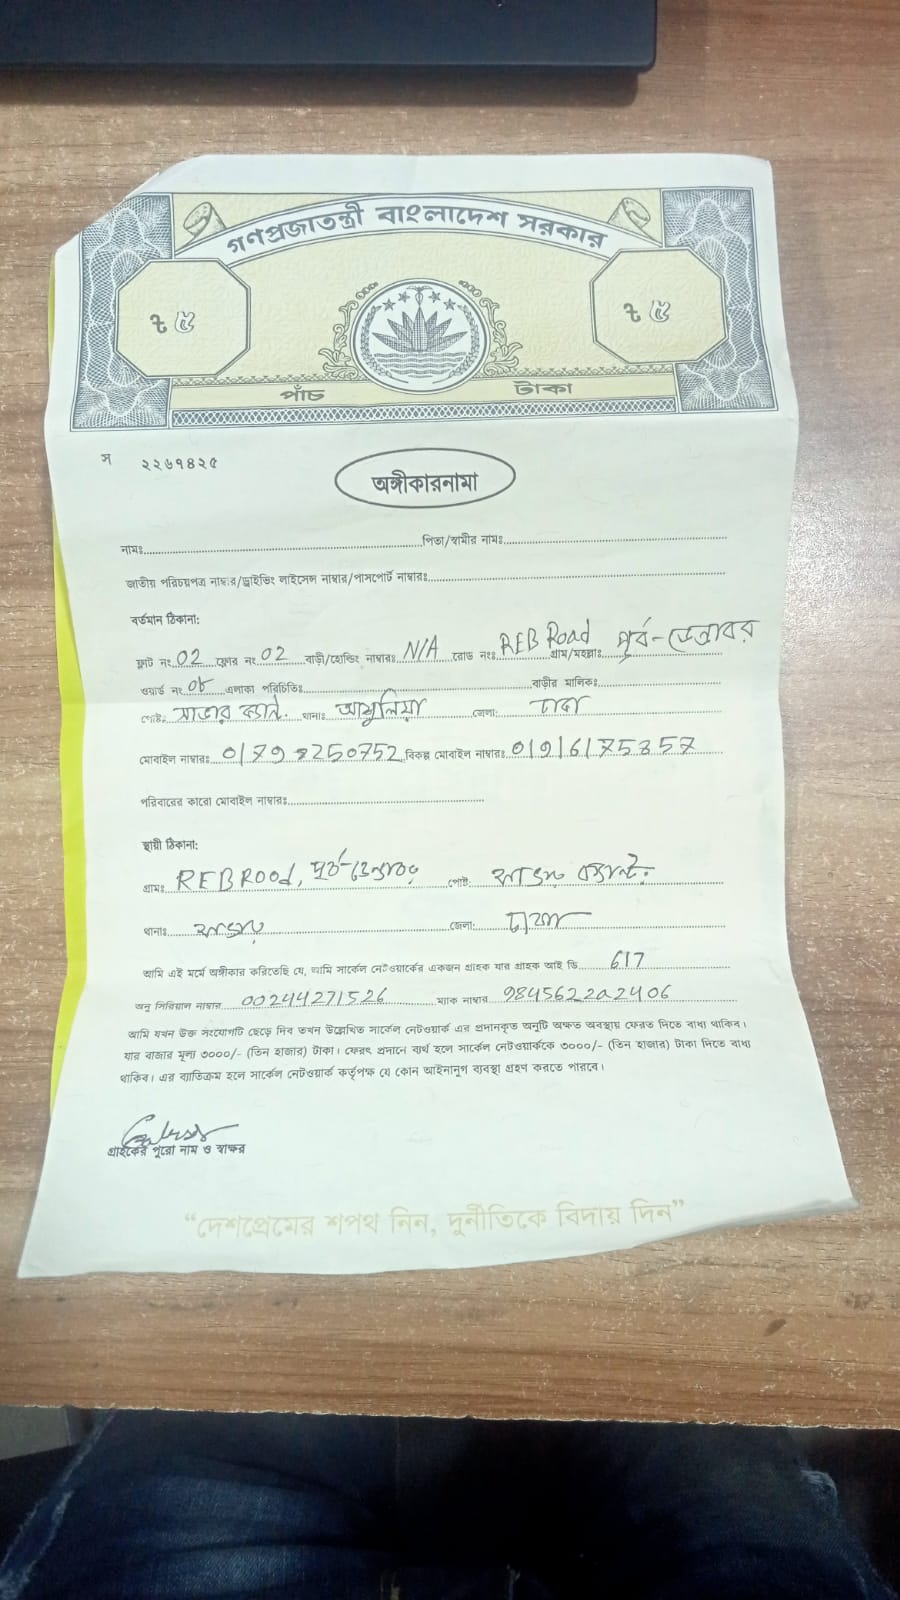 গণপ্রজাতন্ত্রী বাংলাদেশ সরকার
৳ ৫ ৳ ৫
পাঁচ টাকা
স ২২৬৭৪২৫
অঙ্গীকারনামা
নামঃ পিতা/স্বামীর নামঃ
জাতীয় পরিচয়পত্র নাম্বার/ড্রাইভিং লাইসেন্স নাম্বার/পাসপোর্ট নাম্বারঃ
বর্তমান ঠিকানা:
ফ্লাট নং 02 ফ্লোর নং 02 বাড়ী/হোল্ডিং নাম্বারঃ N/A রোড নংঃ REB Road গ্রাম/মহল্লাঃ পূর্ব-ডেন্ডাবর
ওয়ার্ড নং 0৮ এলাকা পরিচিতিঃ বাড়ীর মালিকঃ
পোষ্ট: সাভার ক্যান্ট. থানাঃ আশুলিয়া জেলা: ঢাকা
মোবাইল নাম্বারঃ বিকল্প মোবাইল নাম্বারঃ
পরিবারের কারো মোবাইল নাম্বারঃ
স্থায়ী ঠিকানা:
গ্রামঃ REB Rood, পূর্ব-ডেন্ডাবর পোষ্ট: সাভার ক্যান্ট.
থানাঃ সাভার জেলা: ঢাকা
আমি এই মর্মে অঙ্গীকার করিতেছি যে, আমি সার্কেল নেটওয়ার্কের একজন গ্রাহক যার গ্রাহক আই ডি 617
অনু সিরিয়াল নাম্বার 00244271526 ম্যাক নাম্বার 9845622A2406
আমি যখন উক্ত সংযোগটি ছেড়ে দিব তখন উল্লেখিত সার্কেল নেটওয়ার্ক এর প্রদানকৃত অনুটি অক্ষত অবস্থায় ফেরত দিতে বাধ্য থাকিব।
যার বাজার মূল্য ৩০০০/- (তিন হাজার) টাকা। ফেরৎ প্রদানে ব্যর্থ হলে সার্কেল নেটওয়ার্ককে ৩০০০/- (তিন হাজার) টাকা দিতে বাধ্য
থাকিব। এর ব্যতিক্রম হলে সার্কেল নেটওয়ার্ক কর্তৃপক্ষ যে কোন আইনানুগ ব্যবস্থা গ্রহণ করতে পারবে।
গ্রাহকের পুরো নাম ও স্বাক্ষর
“দেশপ্রেমের শপথ নিন, দুর্নীতিকে বিদায় দিন”